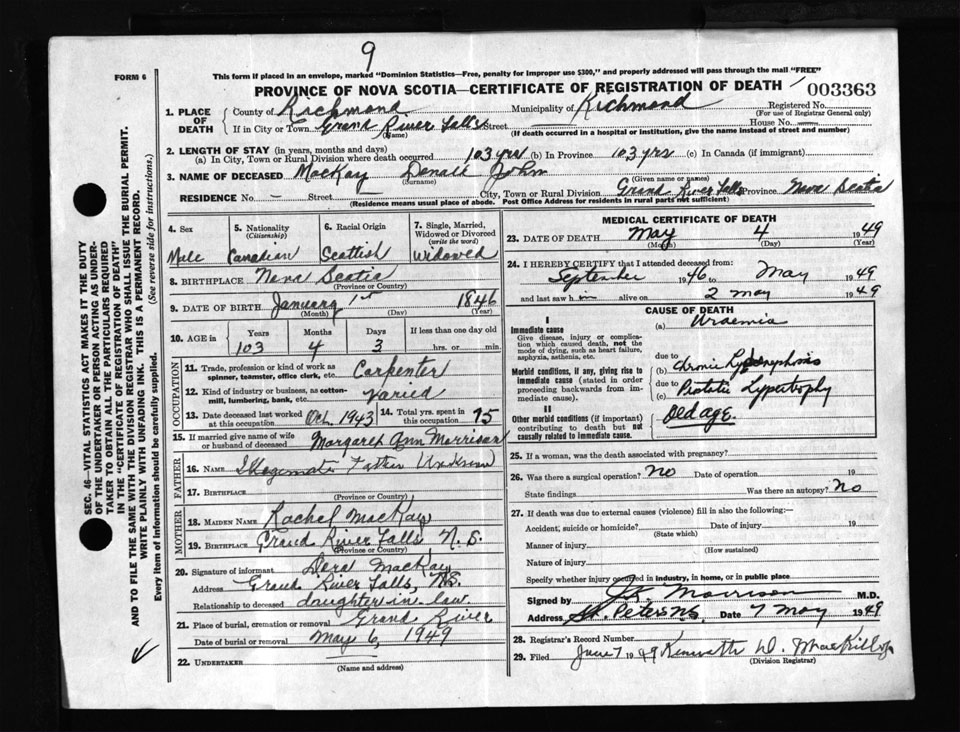 9
FORM 6
This form if placed in an envelope, marked "Dominion Statistics—Free, penalty for improper use $300," and properly addressed will pass through the mail "FREE"
PROVINCE OF NOVA SCOTIA—CERTIFICATE OF REGISTRATION OF DEATH
003363
1. PLACE OF DEATH
County of Richmond Municipality of Richmond Registered No.
(For use of Registrar General only)
If in City or Town Grand River Falls Street House No.
(Name) (If death occurred in a hospital or institution, give the name instead of street and number)
2. LENGTH OF STAY (in years, months and days)
(a) In City, Town or Rural Division where death occurred 103 yrs (b) In Province 103 yrs (c) In Canada (if immigrant)
3. NAME OF DECEASED MacKay Donald John
(Surname) (Given name or names)
RESIDENCE No. — Street City, Town or Rural Division Grand River Falls Province Nova Scotia
(Residence means usual place of abode. Post Office Address for residents in rural parts not sufficient)
4. Sex
Male
5. Nationality
(Citizenship)
Canadian
6. Racial Origin
Scottish
7. Single, Married, Widowed or Divorced
(write the word)
Widowed
8. BIRTHPLACE Nova Scotia
(Province or Country)
9. DATE OF BIRTH January 1st 1846
(Month) (Day) (Year)
10. AGE in
Years Months Days If less than one day old
103 4 3 hrs. or min.
OCCUPATION
11. Trade, profession or kind of work as spinner, teamster, office clerk, etc. Carpenter
12. Kind of industry or business, as cotton-mill, lumbering, bank, etc. Varied
13. Date deceased last worked at this occupation Oct. 1943
14. Total yrs. spent in this occupation 75
15. If married give name of wife or husband of deceased Margaret Ann Morrison
FATHER
16. NAME Illegemate Father Unknown
17. BIRTHPLACE
(Province or Country)
MOTHER
18. MAIDEN NAME Rachel MacKay
19. BIRTHPLACE Grand River Falls N.S.
(Province or Country)
20. Signature of informant Dora MacKay
Address Grand River Falls, N.S.
Relationship to deceased daughter in law
21. Place of burial, cremation or removal Grand River
Date of burial or removal May 6, 1949
22. UNDERTAKER
(Name and address)
MEDICAL CERTIFICATE OF DEATH
23. DATE OF DEATH May 4 1949
(Month) (Day) (Year)
24. I HEREBY CERTIFY that I attended deceased from:
September 1946 May 1949
and last saw him alive on 2 May 1949
CAUSE OF DEATH
I
Immediate cause
Give disease, injury or complication which caused death, not the mode of dying, such as heart failure, asphyxia, asthenia, etc.
(a) Uraemia
due to
Morbid conditions, if any, giving rise to immediate cause (stated in order proceeding backwards from immediate cause)
(b) Chronic
due to
(c) Prostatic Hypertrophy
II
Other morbid conditions (if important) contributing to death but not causally related to immediate cause.
Old age.
25. If a woman, was the death associated with pregnancy?
26. Was there a surgical operation? No Date of operation 19
State findings Was there an autopsy? No
27. If death was due to external causes (violence) fill in also the following:—
Accident, suicide or homicide? Date of injury 19
(State which)
Manner of injury
(How sustained)
Nature of injury
Specify whether injury occurred in industry, in home, or in public place
Signed by Morrison M.D.
Address St. Peters NS Date 7 May 1949
28. Registrar's Record Number
29. Filed June 7 1949 Kenneth D. MacKillop
(Division Registrar)
SEC. 46—VITAL STATISTICS ACT MAKES IT THE DUTY
OF THE UNDERTAKER OR PERSON ACTING AS UNDER-
TAKER TO OBTAIN ALL THE PARTICULARS REQUIRED
IN THE "CERTIFICATE OF REGISTRATION OF DEATH"
AND TO FILE THE SAME WITH THE DIVISION REGISTRAR WHO SHALL ISSUE THE BURIAL PERMIT.
WRITE PLAINLY WITH UNFADING INK. THIS IS A PERMANENT RECORD.
Every item of information should be carefully supplied. (See reverse side for instructions.)